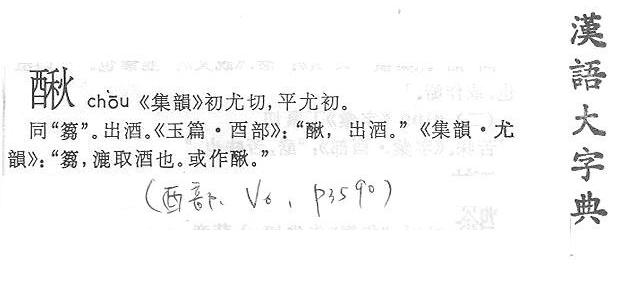 漢語大字典
chōu《集韻》初尤切,平尤初。
同“篘”。出酒。《玉篇·酉部》:“,出酒。”《集韻·尤
韻》:“篘,漉取酒也。或作。”
(酉部、V6、p3590)